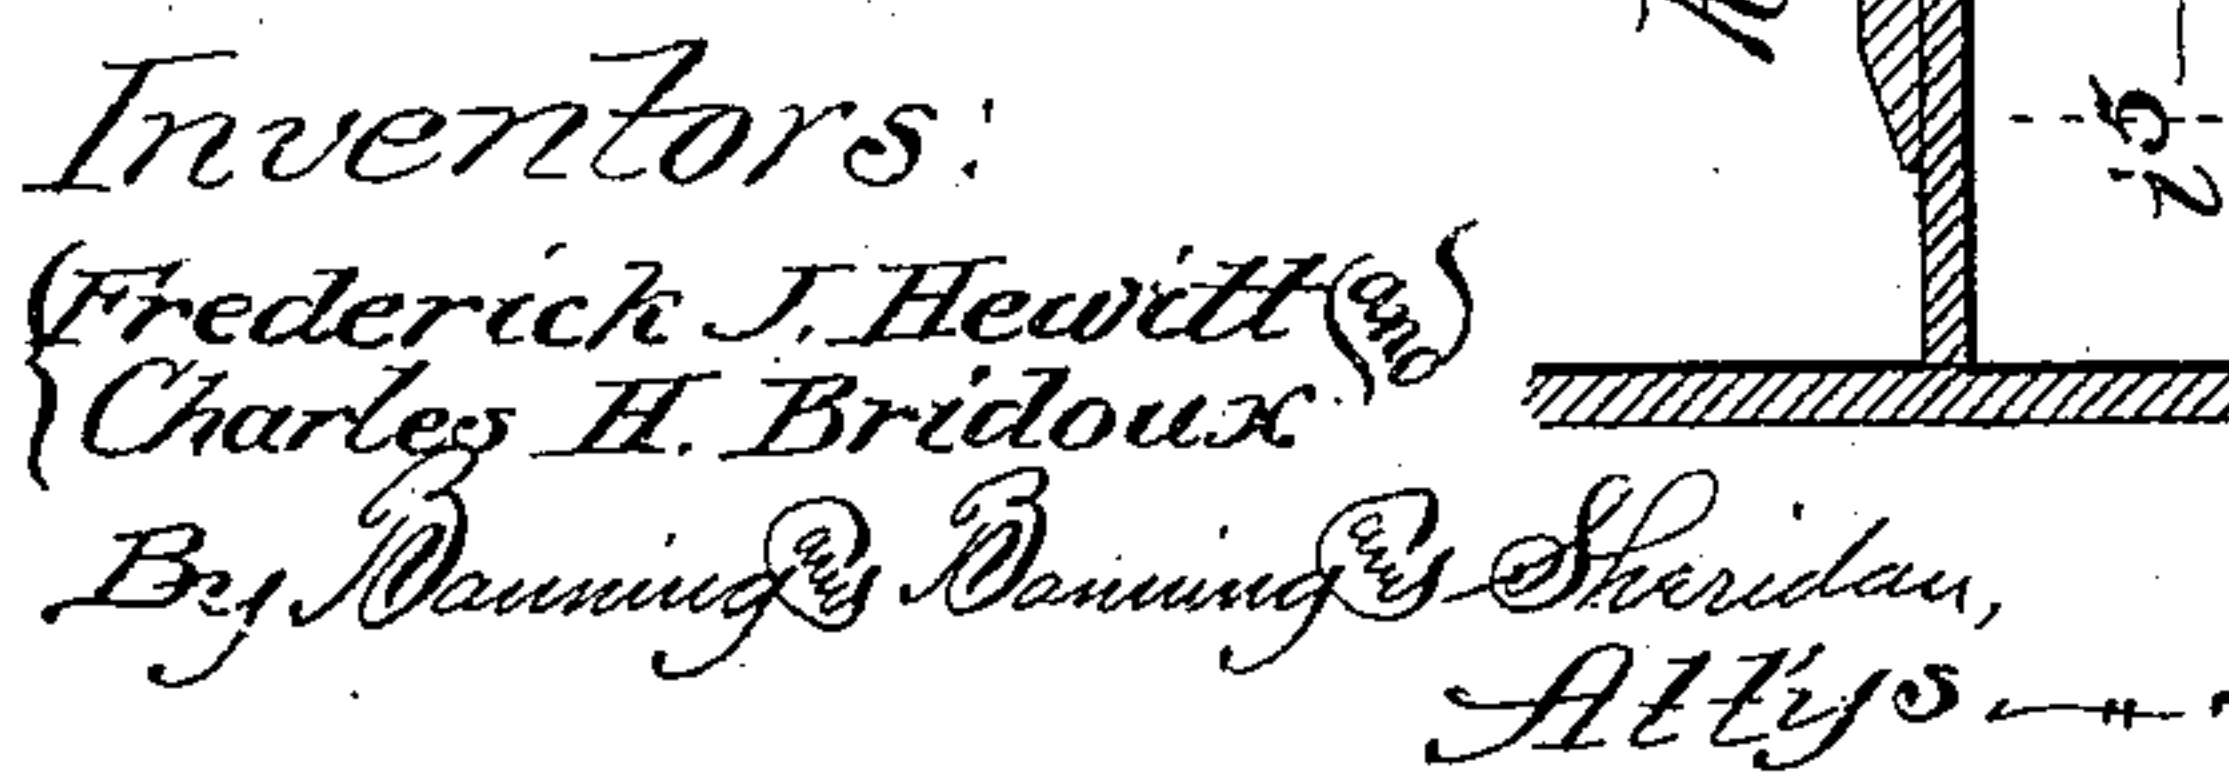 Inventors:
Frederick J. Hewitt and
Charles H. Bridoux.
By Banning and Banning and Sheridan,
Att'ys
25